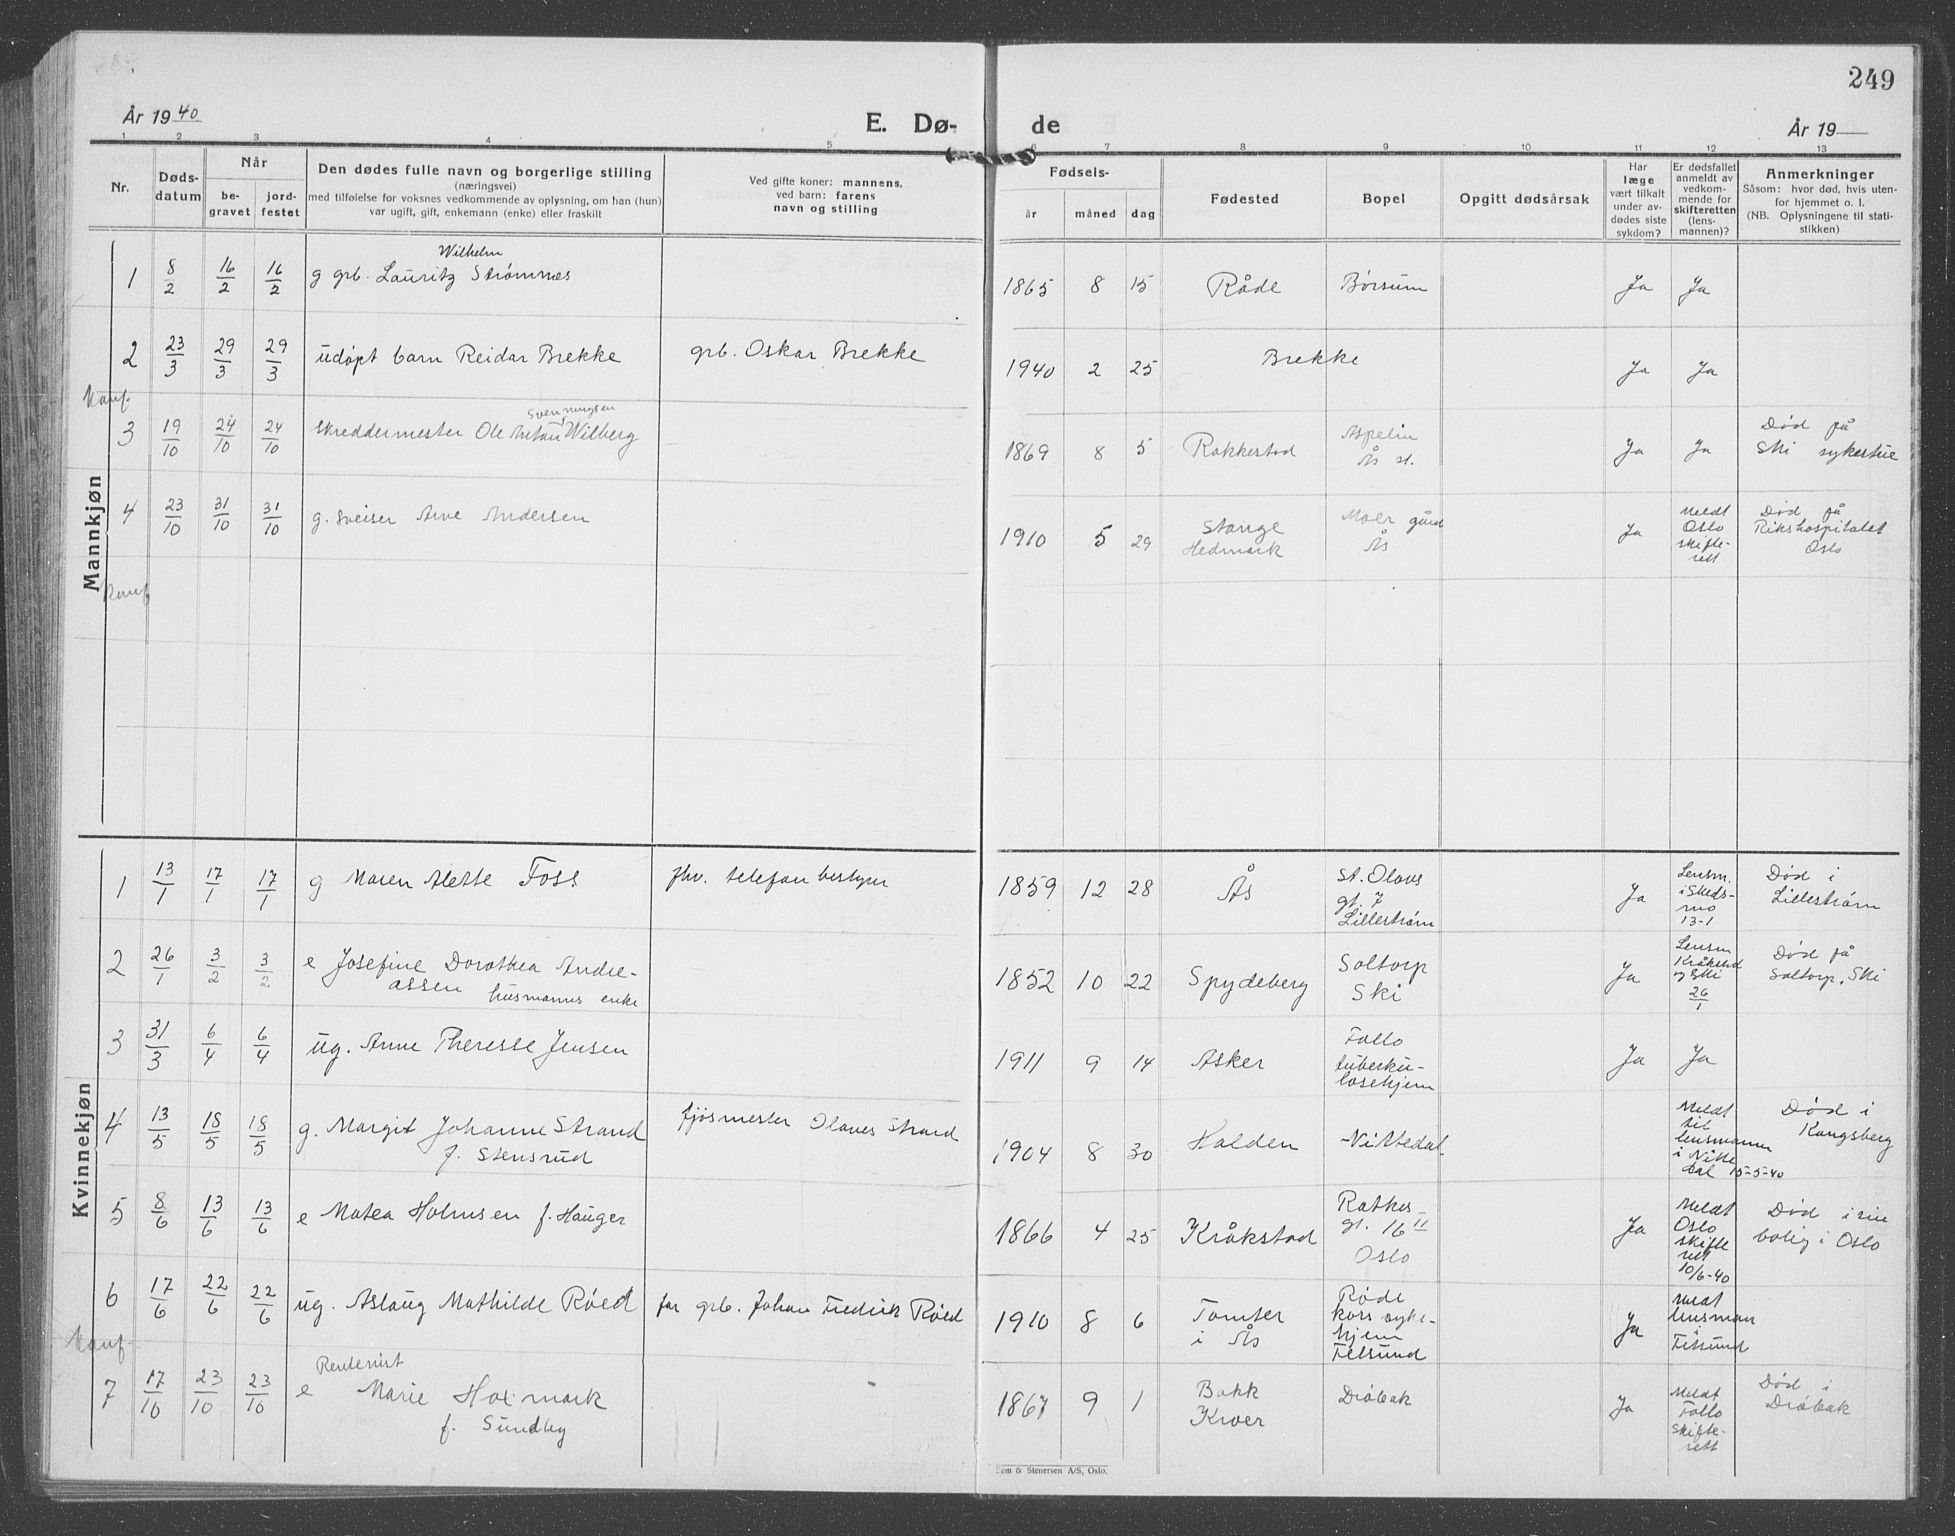 249
År 1940
E. Dø-
de
År 19
1 2 3 4 5 6 7 8 9 10 11 12 13
Nr.
Døds-
datum
Når
be-
gravet
jord-
festet
Den dødes fulle navn og borgerlige stilling
(næringsvei)
med tilføielse for voksnes vedkommende av oplysning, om han (hun)
var ugift, gift, enkemann (enke) eller fraskilt
Ved gifte koner: mannens,
ved barn: farens
navn og stilling
Fødsels-
år
måned
dag
Fødested
Bopel
Opgitt dødsårsak
Har
læge
vært tilkalt
under av-
dødes siste
sykdom?
Er dødsfallet
anmeldt av
vedkom-
mende for
skifteretten
(lens-
mannen)?
Anmerkninger
Såsom: hvor død, hvis uten-
for hjemmet o. l.
(NB. Oplysningene til stati-
stikken)
Mannkjøn
Wilhelm
1 8/2 16/2 16/2 g grb. Lauritz Strømnes 1865 8 15 Råde Børsum Ja Ja
2 23/3 29/3 29/3 udøpt barn Reidar Brekke grb. Oskar Brekke 1940 2 25 Brekke Ja Ja
Svenningsen
3 19/10 24/10 24/10 skreddermester Ole Anton Wilberg 1869 8 5 Rakkestad Aspelin
Ås st.
Ja Ja Død på
Ski sykestue
4 23/10 31/10 31/10 g. sveiser Arve Andersen 1910 5 29 Stange
Hedmark
Moer gård
Ås
Ja Meldt
Oslo
skifte-
rett
Død på
Rikshospitalet
Oslo
Kvinnekjøn
1 13/1 17/1 17/1 g Maren Alette Foss fhv. telefonbestyrer 1859 12 28 Ås St. Olavs
gt. 7
Lillestrøm
Ja Lensm.
i Skeds-
mo
13-1
Død i
Lillestrøm
2 26/1 3/2 3/2 e Josefine Dorothea Andre-
assen husmanns enke
1852 10 22 Spydeberg Soltorp
Ski
Ja Lensm
Kråkstad
og Ski
26/1
Død på
Soltorp, Ski
3 31/3 6/4 6/4 ug. Anne Therese Jensen 1911 9 14 Asker Follo
tuberku-
losehjem
Ja Ja
4 13/5 18/5 18/5 g. Margit Johanne Strand
f. Stensrud
fjøsmester Olaves Strand 1904 8 30 Halden Nittedal
Meldt
til
lensmannen
i Nitte
dal 15-5-40
Død i
Kongsberg
5 8/6 13/6 13/6 e Matea Holmsen f. Hauger 1866 4 25 Kråkstad Rathkes-
gt. 16 II
Oslo
Ja Meldt
Oslo
skifte
rett
10/6-40
Død i sin
bolig i Oslo
6 17/6 22/6 22/6 ug. Aslaug Mathilde Røed far grb. Johan Fredrik Røed 1910 8 6 Tomter
i Ås
Røde
kors syke-
hjem
Fetsund
Ja Meldt
lensman
i
Fetsund
Rentenist
7 17/10 23/10 23/10 e Marie Holmark
f. Sundby
1867 9 1 Bakk
Kroer
Drøbak
Ja Meldt
Follo
skifte-
rett
Død i
Drøbak
Sem & Stenersen A/S, Oslo.